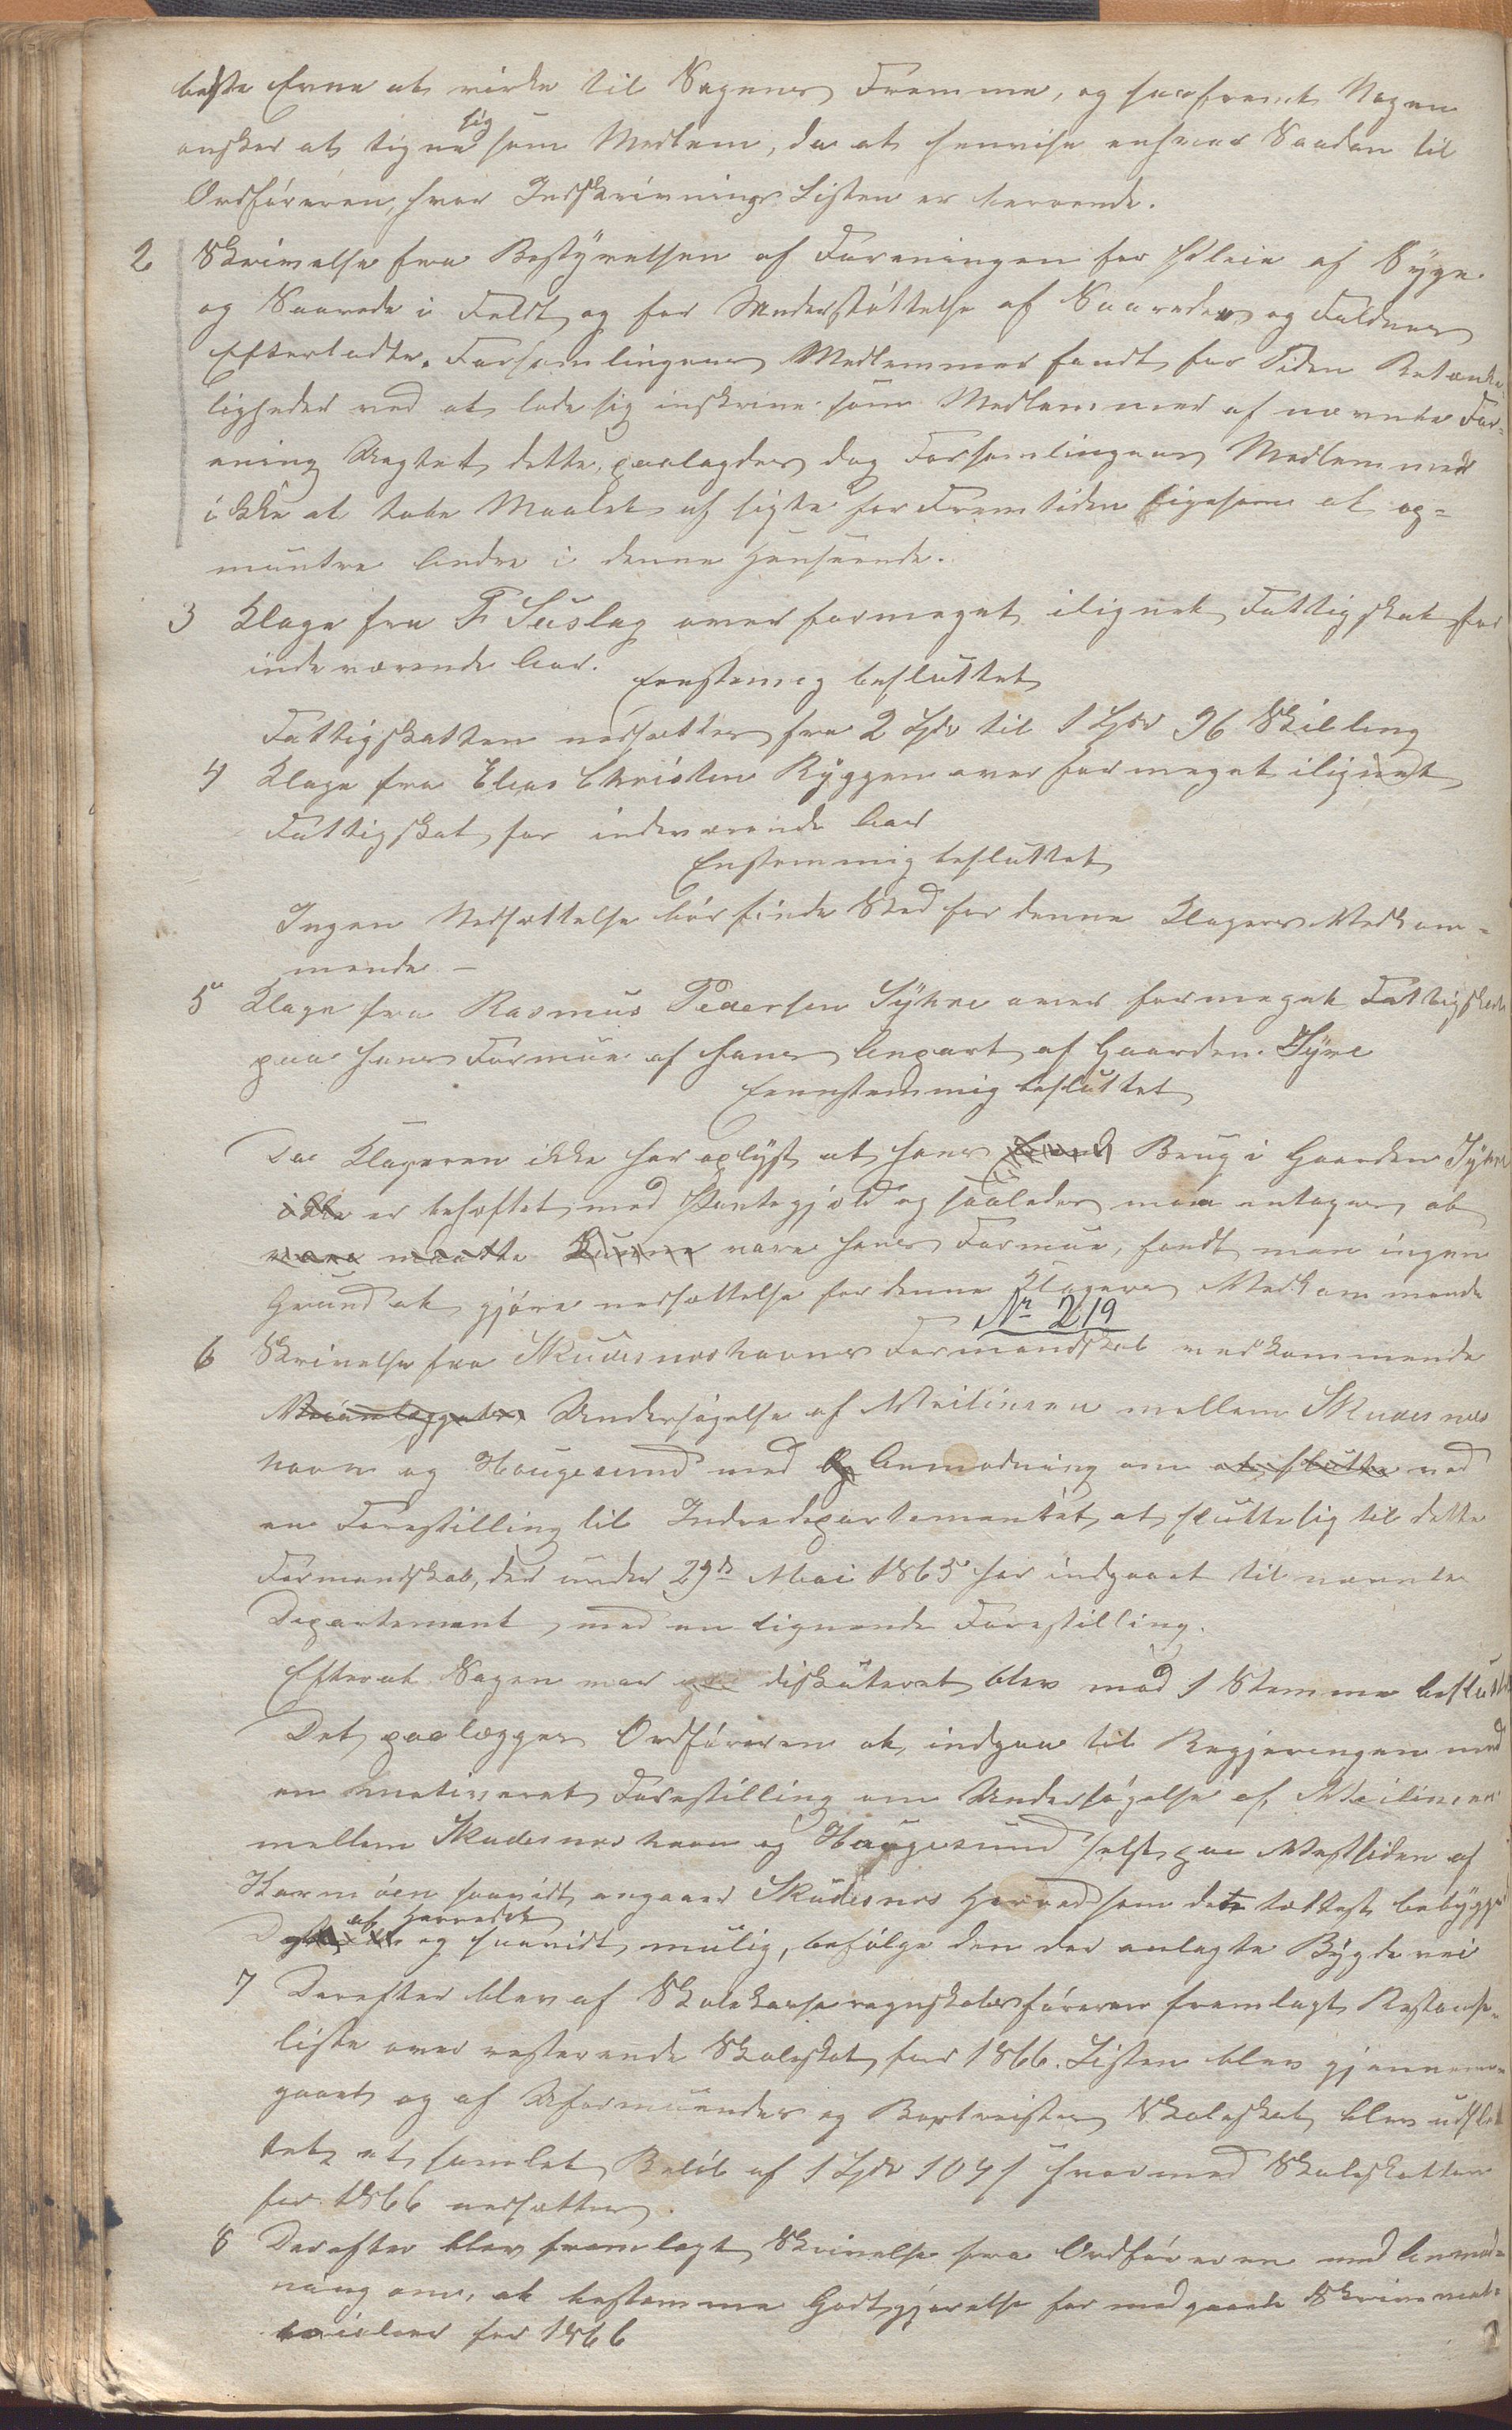 beste Evne at virke til Sagens Fremme, og saafremt Nogen
ønsker at tegne sig som Medlem, da at henvise enhver Saadan til
Ordføreren, hvor Indskrivnings Listen er beroende.
2 Skrivelse fra Bestyrelsen af Foreningen for Pleie af Syge
og Saarede i Feldt og for Understøttelse af Saarede og Faldnes
Efterladte. Forsamlingens Medlemmer fandt for Tiden Betænke
ligheder ved at lade sig inskrive som Medlemmer af nævnte For-
ening Uagtet dette, paalagdes dog Forsamlingens Medlemmer
ikke at tabe Maalet af sigte for Fremtiden ligesom at op-
muntre Andre i denne Henseende.
3 Klage fra F. Suslag over formeget ilignet Fattigskat for
indeværende Aar.
Eenstemig besluttet
Fattigskatten nedsættes fra 2 Spd til 1 Spd 96 Skilling
4 Klage fra Elias Christen Ryggen over for meget ilignet
Fattigskat for indeværende Aar
Enstemmig besluttet
Ingen Nedsættelse bør finde Sted for denne Klagers Vedkom-
mende –
5 Klage fra Rasmus Pedersen Syhre over formeget Fattigskat
paa hans Formue af hans Anpart af Gaarden Syre
Eenstemmig besluttet
Da Klageren ikke har oplyst at hans Brug i Gaarden Syhre
ikke er behæftet med Pantegjæld og saaledes maa antages, at
være maatte kunne være hans Formue, fandt man ingen
Grund at gjøre nedsættelse for denne Klagers Vedkommende
No 219
6 Skrivelse fra Skudesneshavns Formandskab vedkommende
Veianlæggets Undersøgelse af Veilinien mellem Skudesnes
havn og Haugesund med Anmodning om at slutte ved
en Forestilling til Indredepartementet at slutte sig til dette
Formandskab, der under 29de Mai 1865 har indgaaet til nævnte
Departement med en lignende Forestilling.
Efterat Sagen var diskuteret blev mod 1 Stemme besluttet
Det paalægges Ordføreren at indgaa til Regjeringen med
en motiveret Forestilling om Undersøgelse af Veilinien
mellem Skudesneshavn og Haugesund helst paa Vestsiden af
Karmøen saavidt angaar Skudesnes Herred som det tættest bebygge
af Herredet
og saavidt mulig, befølge den der anlagte Bygdevei
7 Derefter blev af Skolekasseregnskabsføreren fremlagt Restanse-
liste over resterende Skoleskat for 1866. Listen blev gjennem-
gaaet og af Uformuendes og Bortreistes Skoleskat blev udslet
tet et samlet Beløb af 1 Spd 104 s hvormed Skoleskatten
for 1866 nedsættes.
8 Derefter blev fremlagt Skrivelse fra Ordføreren med Anmod-
ning om, at bestemme Godtgjørelse for medgaaede Skrivemat-
terialier for 1866